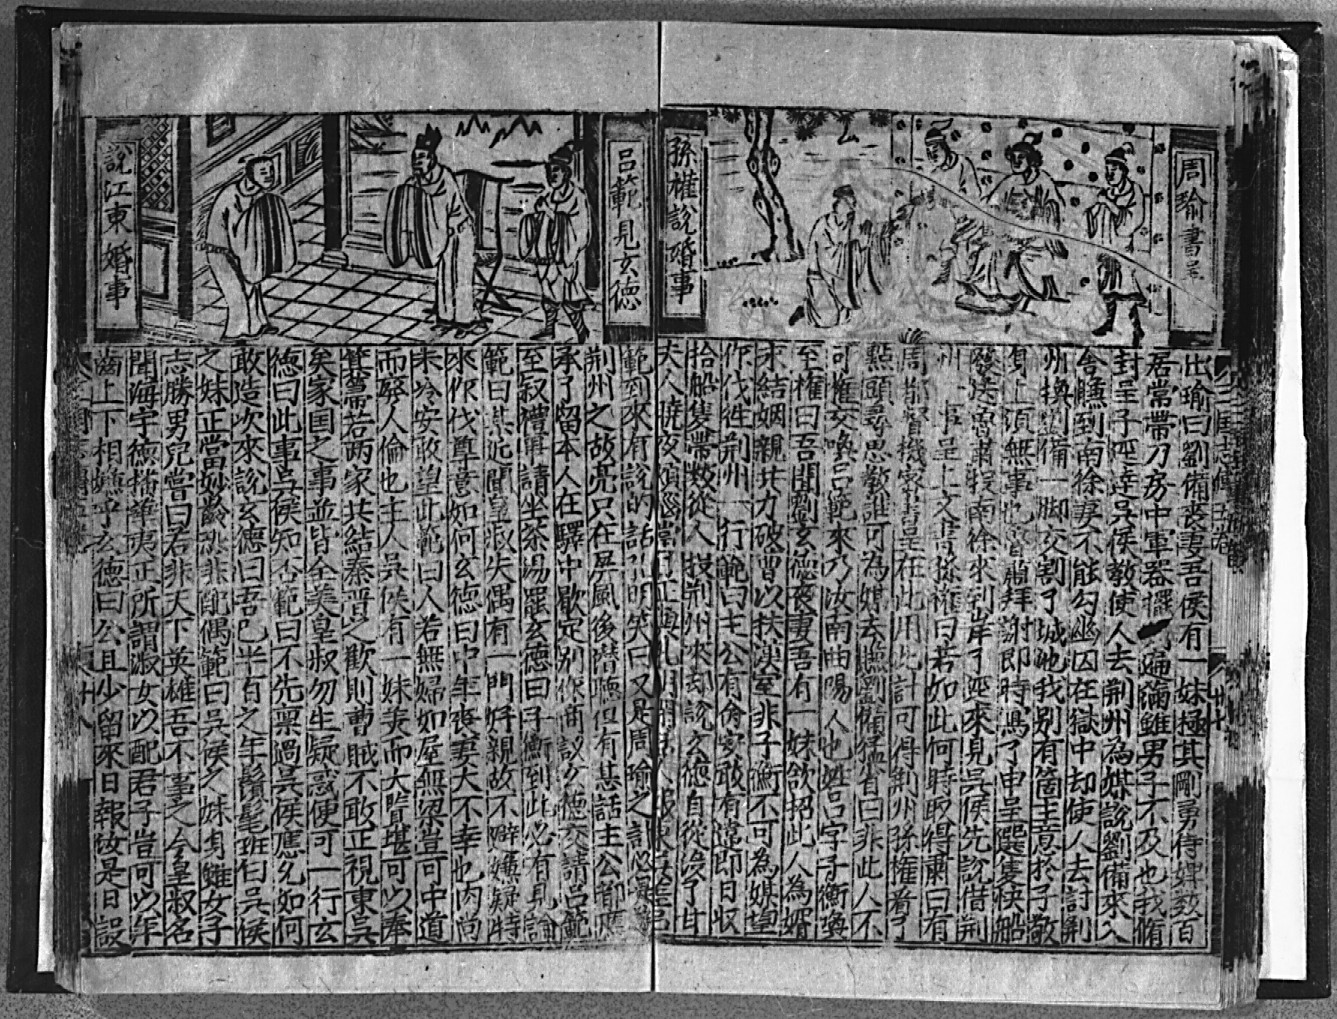 周瑜書呈
孫權說婚事
出瑜曰劉備喪妻吾侯有一妹極其剛勇侍婢数百
居常帶刀房中軍器擺 遍滿雖男子不及也我脩
封呈子 達吳侯教使人去荊州為媒說劉備來入
舍賺到南徐妻不能勾幽囚在獄中却使人去討荊
州換劉備一脚交割了城池我別有箇主意於子敬
身上須無事也 肅拜謝即時寫了申呈選隻快船
發送魯肅 南徐來到岸了 來見吳侯先說借荊
州 事呈上文書孫權曰若如此何時取得肅曰有
周都督機密書呈在此用此計可得荊州孫權看了
點頭尋思教誰可為媒去 劉備猛省曰非此人不
可權交喚呂範來乃汝南 陽人也姓呂字子衡喚
至權曰吾聞劉玄德喪妻吾有一妹欲招此人為婿
求結姻親共力破曹以扶漢室非子衡不可為媒望
作伐徃荊州一行範曰主公有命安敢有違即日收
拾船隻帶数從人投荊州來却說玄德自從沒了甘
夫人曉夜煩惱當日正與孔明閑話人報東吳差呂
呂範見玄德
說江東婚事
範到來有說的話孔明笑曰又是周瑜之計必為
荊州之故亮只在屏風後潛聽但有甚話主公都應
承了留本人在驛中歇定別作商議玄德交請呂範
至叙禮畢請坐茶湯罷玄德曰子衡到此必有見諭
範曰某近聞皇叔失偶有一門好親故不避嫌疑特
來作伐尊意如何玄德曰中年喪妻大不幸也肉尚
未冷安敢望此範曰人若無婦如屋無梁豈可中道
而廢人倫也主人吳侯有一妹美而大賢堪可以奉
箕箒若两家共結秦晋之歡則曹賊不敢正視東吳
矣家国之事並皆全美皇叔勿生疑惑便可一行玄
德曰此事吳侯知否範曰不先禀過吳侯應允如何
敢造次來說玄德曰吾已半百之年鬚髦班白吳侯
之妹正當妙齡恐非配偶範曰吳侯之妹身雖女子
志勝男兒嘗曰若非天下英雄吾不事之今皇叔名
聞海宇德播華夷正所謂淑女以配君子豈可以年
齒上下相嫌乎玄德曰公且少留來日報汝是日設